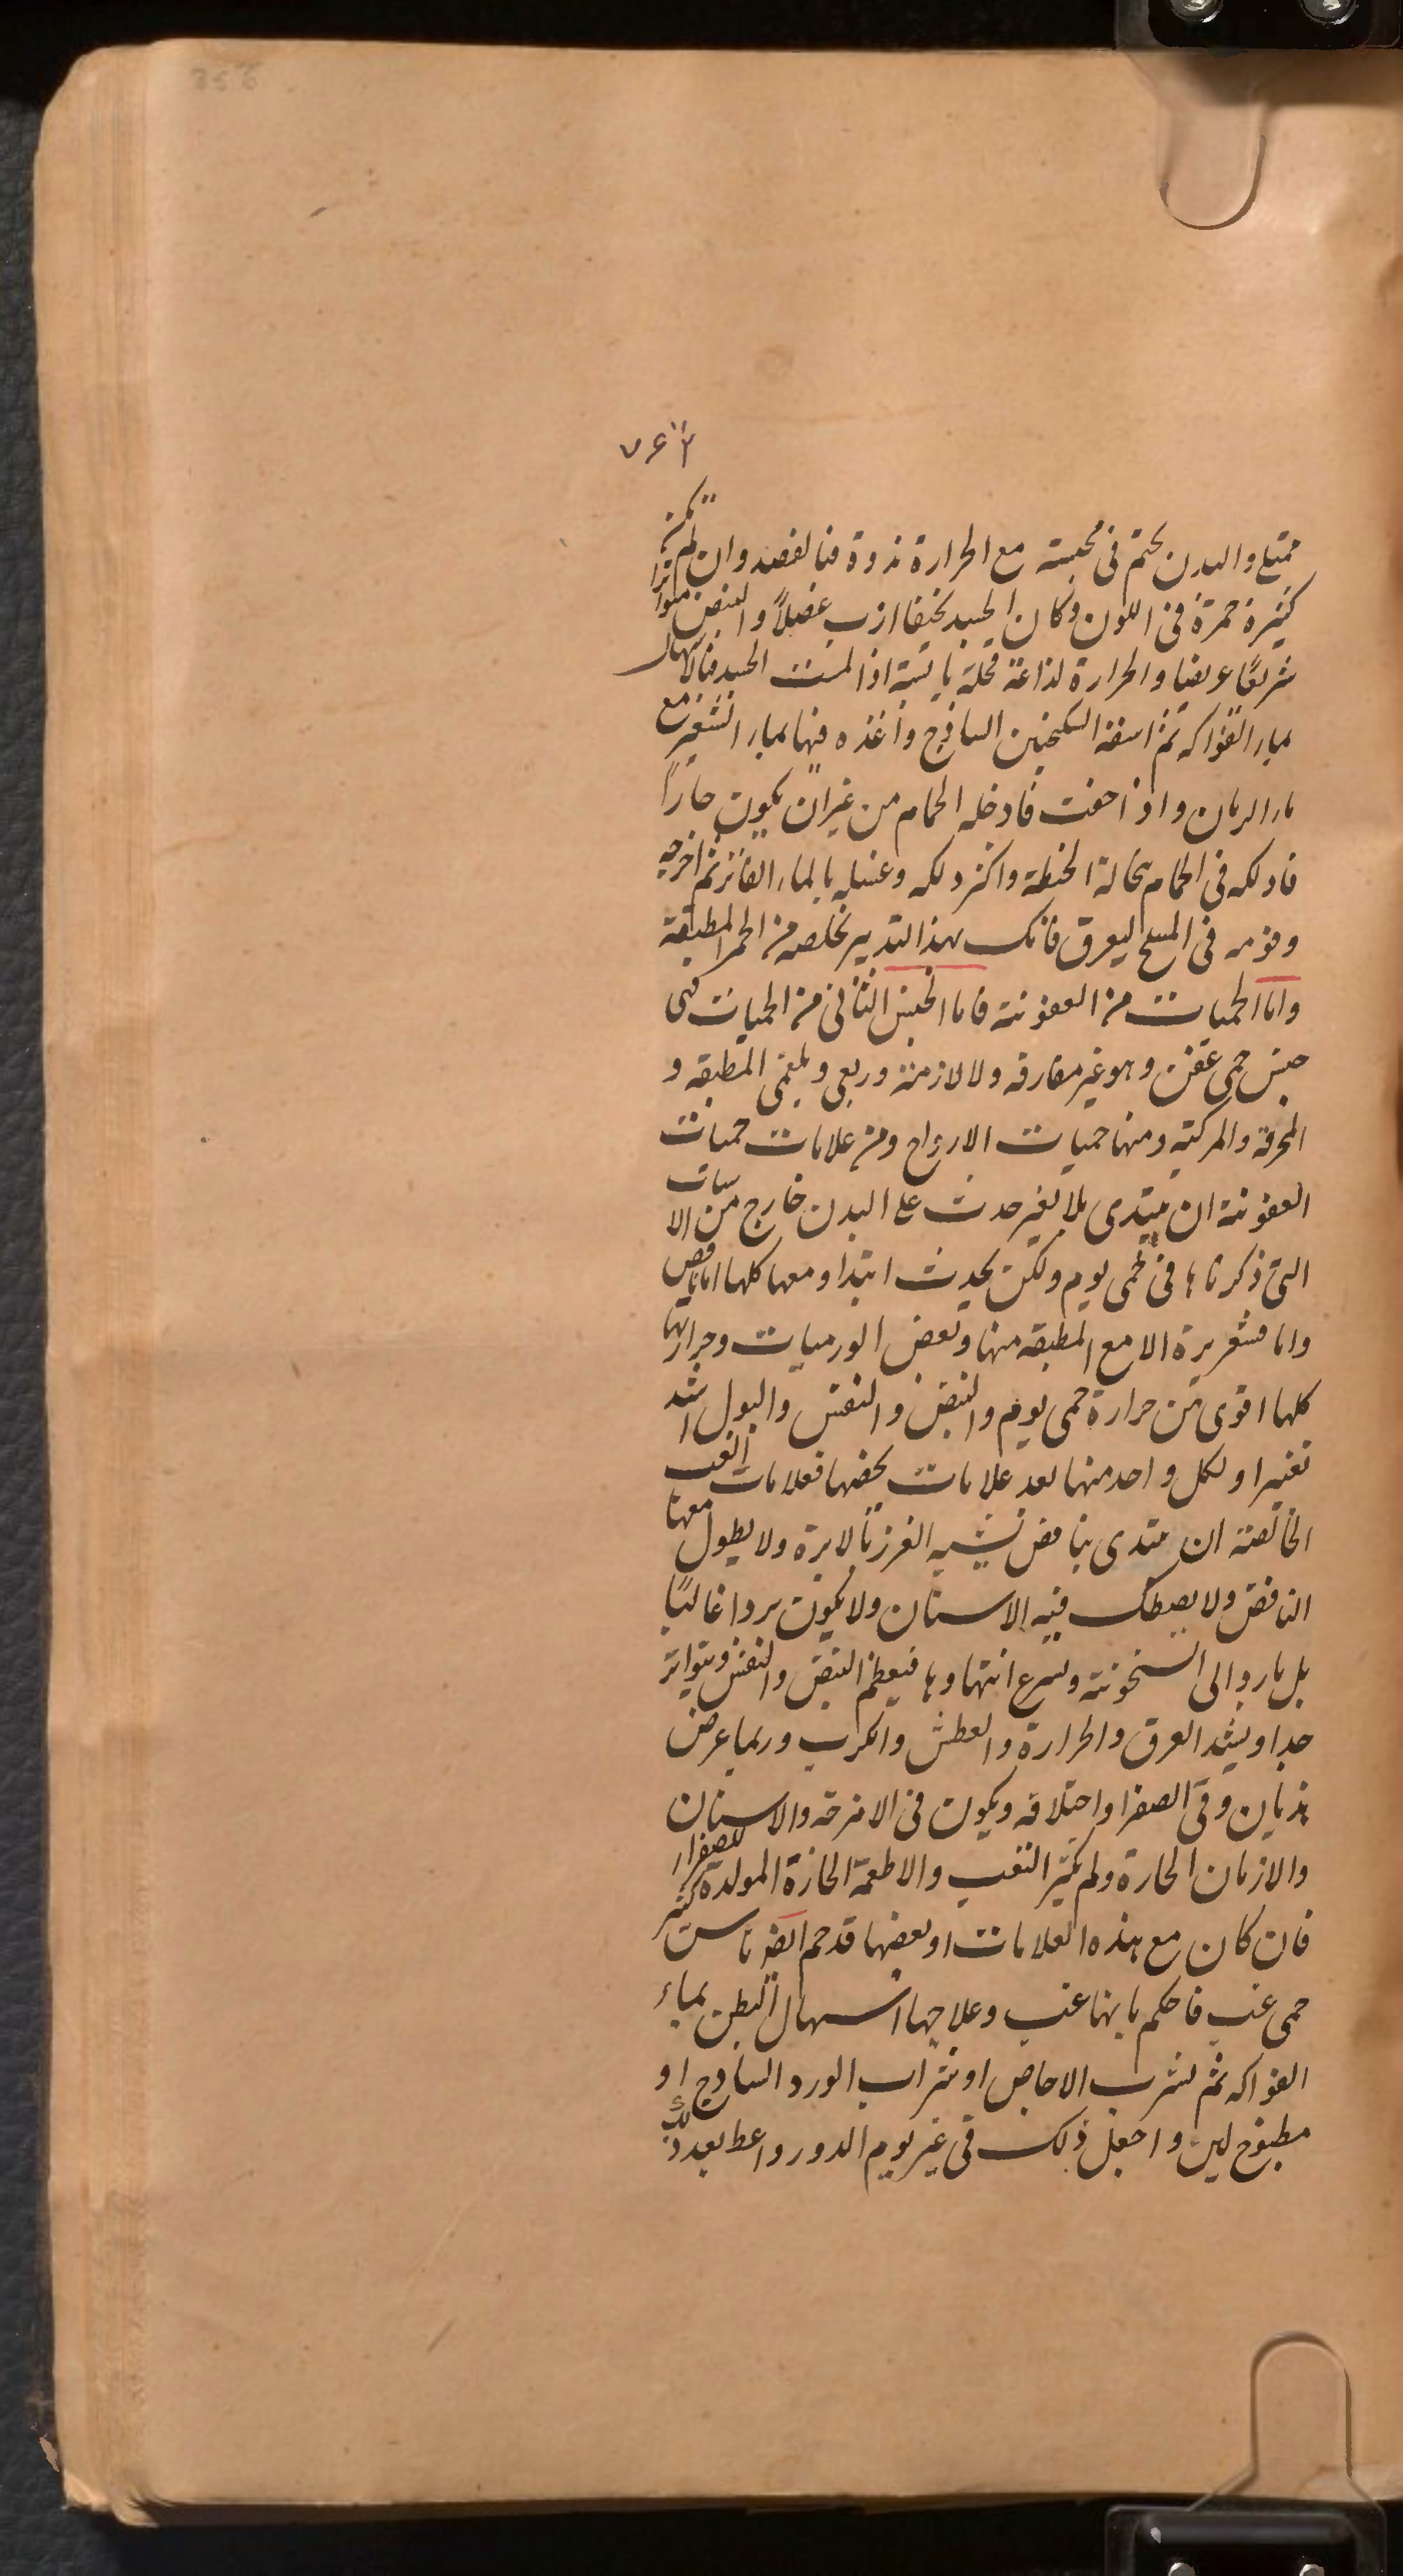 356
۷۶۳
ممتلئ والبدن يحتم في مجسته مع الحرارة نداوة فبالفصد وان لم تكن
كثيرة حمرة في اللون وكان الجسد نحيفا ازب عضلاً والنبض متواترا
شريعًا عريضا والحرارة لذاعة قحلة يابسة اذا لمست الجسد فبالاسهال
بماء الفواكه ثم اسقه السكنجبين الساذج واغذه فيها بماء الشعير مع
ماء الرمان واذا خفت فادخله الحمام من غير ان يكون حاراً
فادلكه في الحمام بنخالة الحنطة واكثر دلكه وغسله بالماء الفاتر ثم اخرجه
ونومه في المسلح ليعرق فانك بهذا التدبير تخلصه من الحمى المطبقة
واما الحميات من العفونة فاما الجنس الثاني من الحميات فهى
جنس حمى عفن وهو غير مفارقه ولا لازمنة وربعى وبلغمى المطبقه و
المحرقة والمركبة ومنها حميات الارواح ومن علامات حميات
العفونة ان يبتدى بلا تغير حدث على البدن خارج من الاسباب
التى ذكرناها في حمى يوم ولكن يحدث ابتدا ومعها كلها اما نافض
واما قشعريرة الا مع المطبقه منها وبعض الورميات وحرارتها
كلها اقوى من حرارة حمى يوم والنبض والنفس والبول اشد
تغيرا ولكل واحد منها بعد علامات يخصها فعلامات الغب
الخالصة ان يبتدى بنافض يشبه الغرز بالابرة ولا يطول معها
النافض ولا يصطك فيه الاسنان ولا يكون بردا غالبًا
بل بارد الى السخونة ويسرع انتهاوها فيعظم النبض والنفس ويتواتر
جدا ويشد العرق والحرارة والعطش والكرب وربما عرض
هذيان وقئ الصفرا واختلافه ويكون في الامزجة والاسنان
والازمان الحارة ولم يكثر التعب والاطعمة الحارة المولدة للصفراء
فان كان مع هذه العلامات او بعضها قد حم ايضا ناس كثير
حمى غب فاحكم بانها غب وعلاجها اسهال البطن بماء
الفواكه ثم بشرب الاجاص او شراب الورد الساذج او
مطبوخ لين واجعل ذلك في غير يوم الدور واعط بعد ذلك